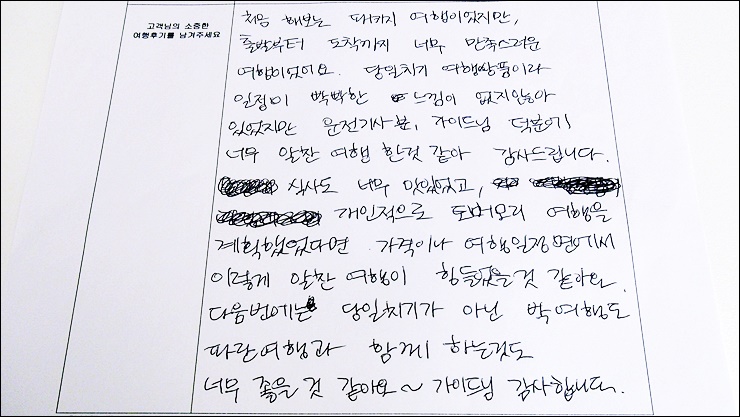 고객님의 소중한
여행후기를 남겨주세요
처음 해보는 패키지 여행이었지만,
출발부터 도착까지 너무 만족스러운
여행이었어요. 당일치기 여행상품이라
일정이 빡빡한 느낌이 없지않아
있었지만 운전기사분, 가이드님 덕분에
너무 알찬 여행 한것 같아 감사드립니다.
식사도 너무 맛있었고,
개인적으로 토버모리 여행을
계획했었다면 가격이나 여행일정면에서
이렇게 알찬 여행이 힘들었을것 같아요.
다음번에는 당일치기가 아닌 박 여행도
파란여행과 함께 하는것도
너무 좋을 것 같아요~ 가이드님 감사합니다.